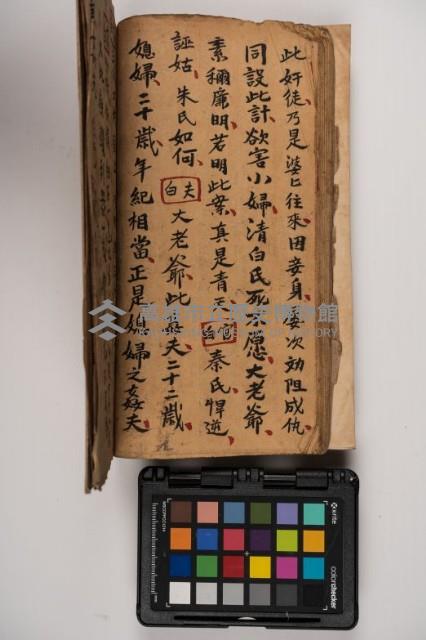 此奸徒乃是婆匕往來因妾身婁次効阻成仇
同設此計欲害小婦清白氏死不愿大老爺
素稱廉明若明此案真是青天 秦氏悍逆
誣姑 朱氏如何 夫白 大老爺此姦夫二十二歲
媳婦二十歲年紀相當正是媳婦之姦夫
高雄市立歷史博物館
KAOHSIUNG MUSEUM OF HISTORY
x-rite
colorchecker